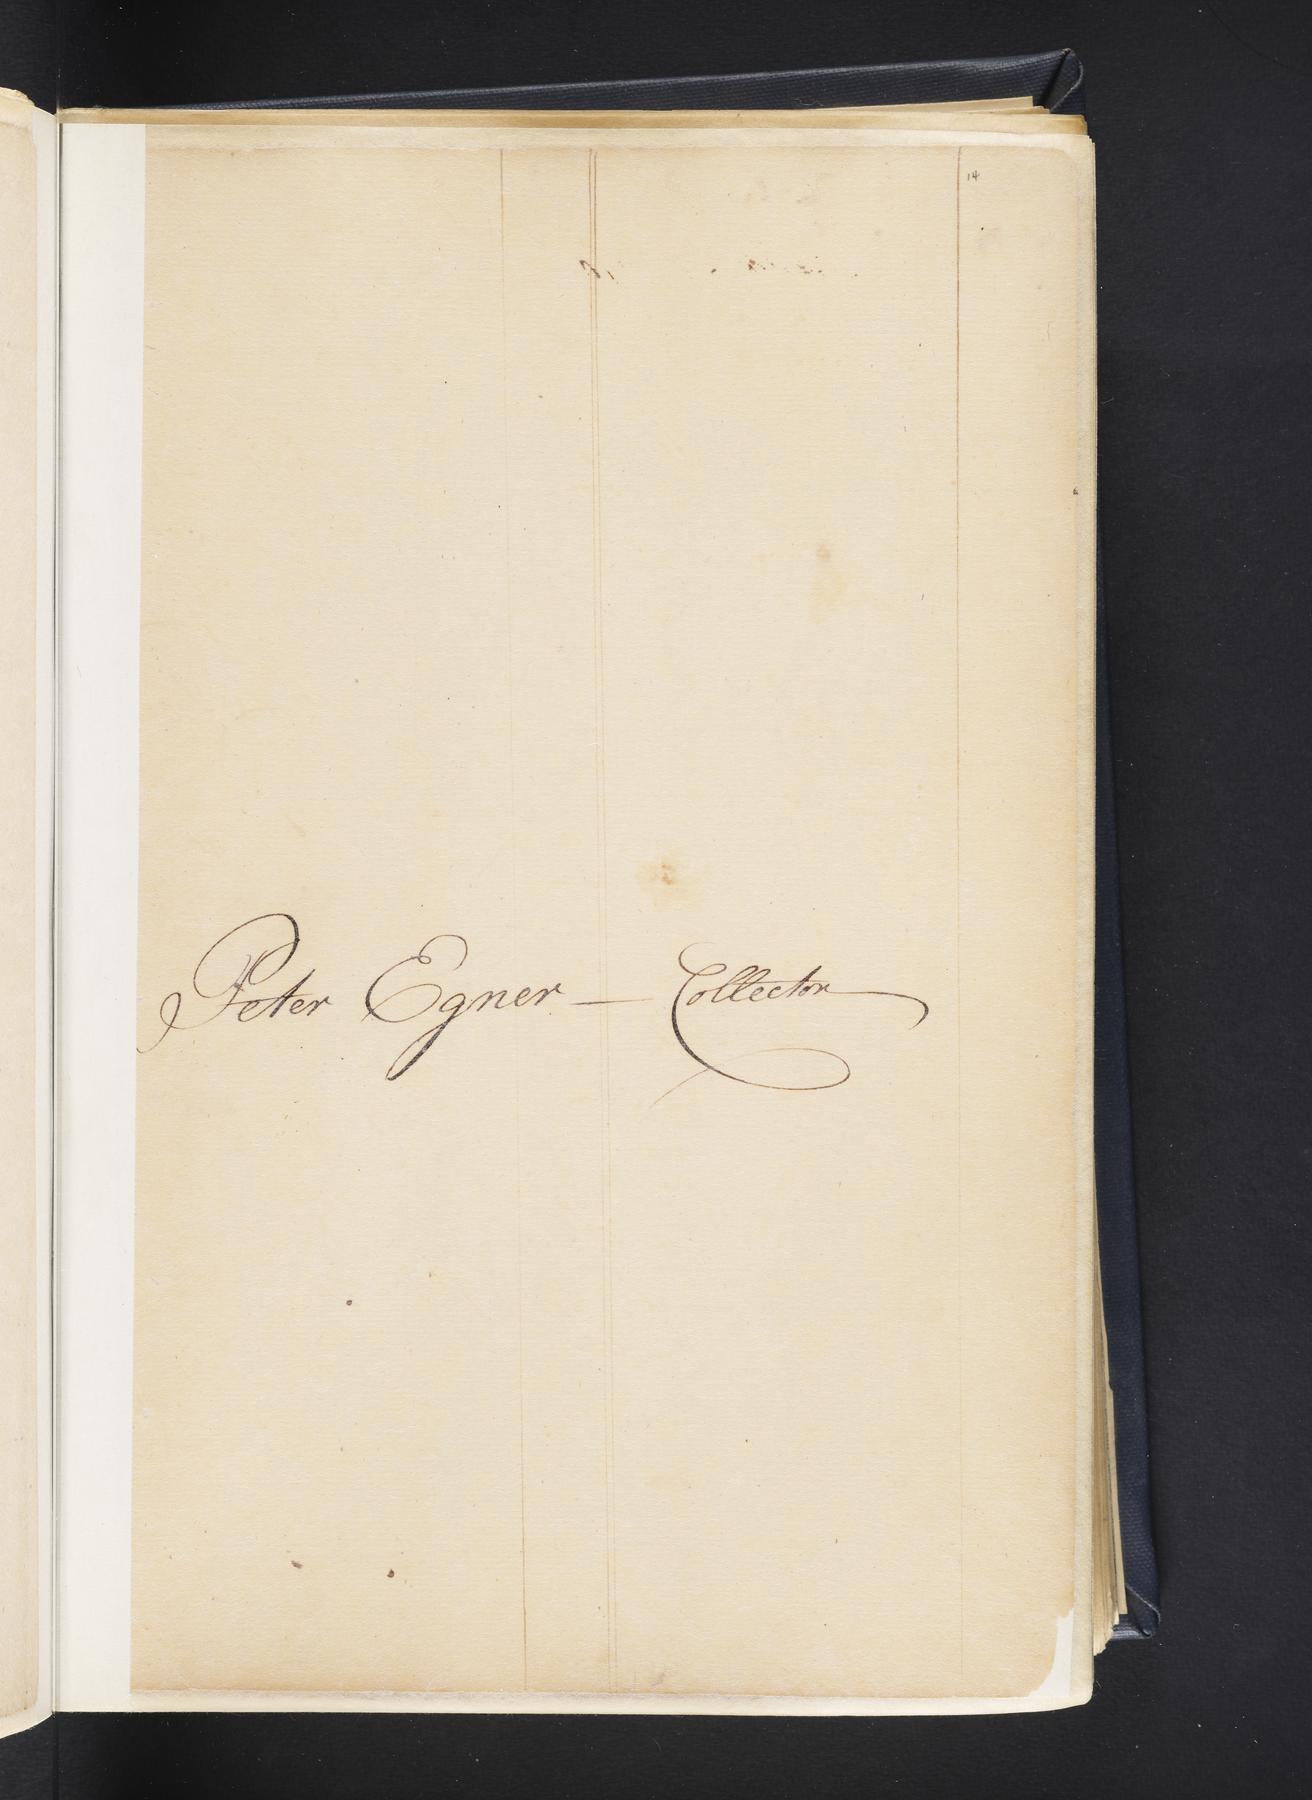 14
Peter Egner — Collector